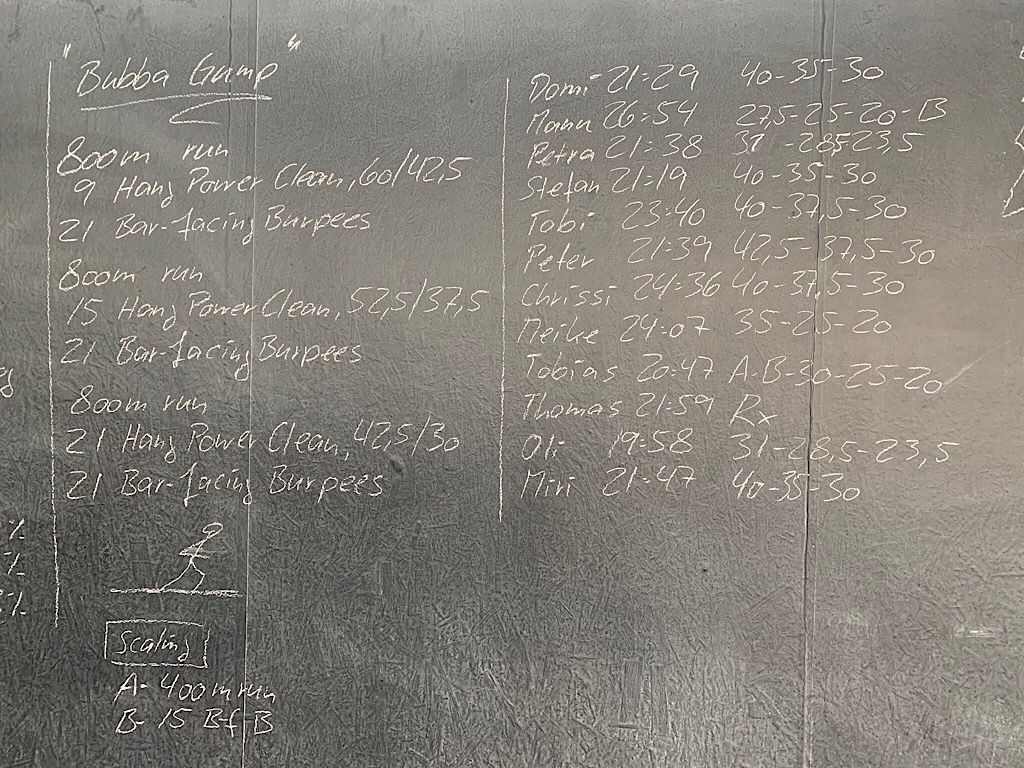 "Bubba Gump"
800m run
9 Hang Power Clean, 60/42,5
21 Bar-facing Burpees
800m run
15 Hang Power Clean, 52,5/37,5
21 Bar-facing Burpees
800m run
21 Hang Power Clean, 42,5/30
21 Bar-facing Burpees
Scaling
A- 400m run
B- 15 B-f-B
Domi 21:29 40-35-30
Manu 26:54 27,5-25-20-B
Petra 21:38 31-28,5-23,5
Stefan 21:19 40-35-30
Tobi 23:40 40-37,5-30
Peter 21:39 42,5-37,5-30
Chrissi 24:36 40-37,5-30
Meike 24:07 35-25-20
Tobias 20:47 A-B-30-25-20
Thomas 21:59 Rx
Oli 19:58 31-28,5-23,5
Miri 21:47 40-35-30